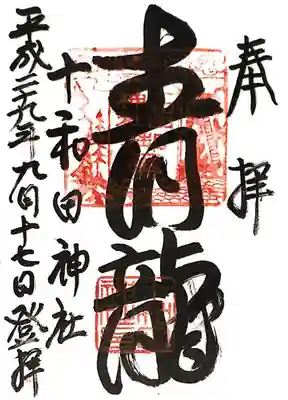 奉拝
青龍
十和田神社
平成二九年九月十七日登拝